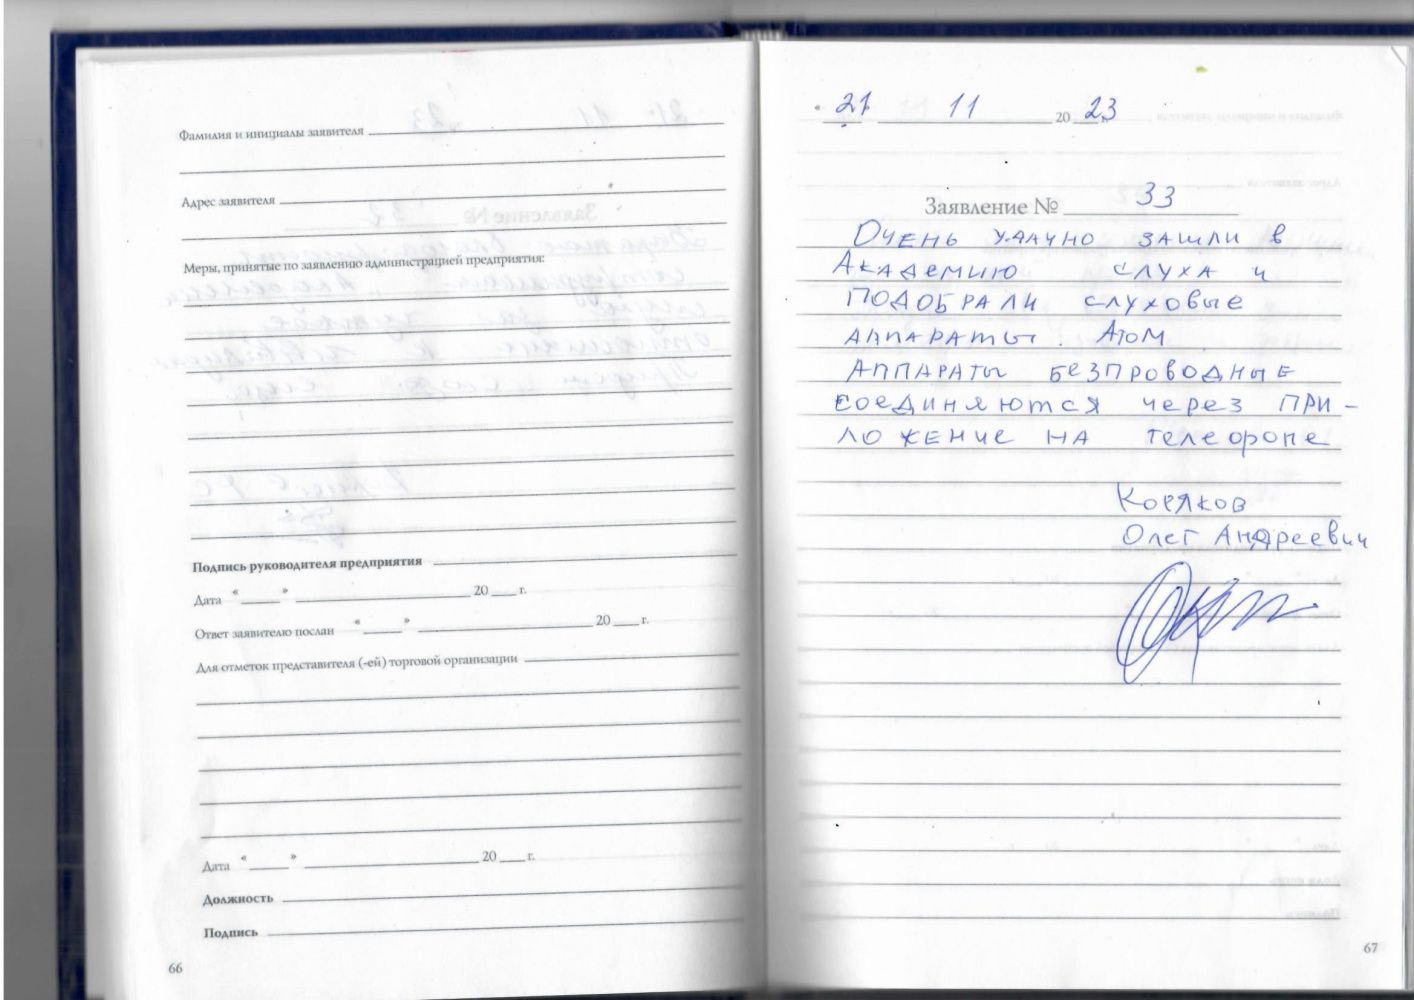 Фамилия и инициалы заявителя
Адрес заявителя
Меры, принятые по заявлению администрацией предприятия:
Подпись руководителя предприятия
Дата « » 20 г.
Ответ заявителю послан « » 20 г.
Для отметок представителя (-ей) торговой организации
Дата « » 20 г.
Должность
Подпись
66
« 21 11 20 23
Заявление № 33
Очень удачно зашли в
Академию слуха и
подобрали слуховые
аппараты. Атом.
Аппараты безпроводные
соединяются через при-
ложение на телефоне
Олег Андреевич
67